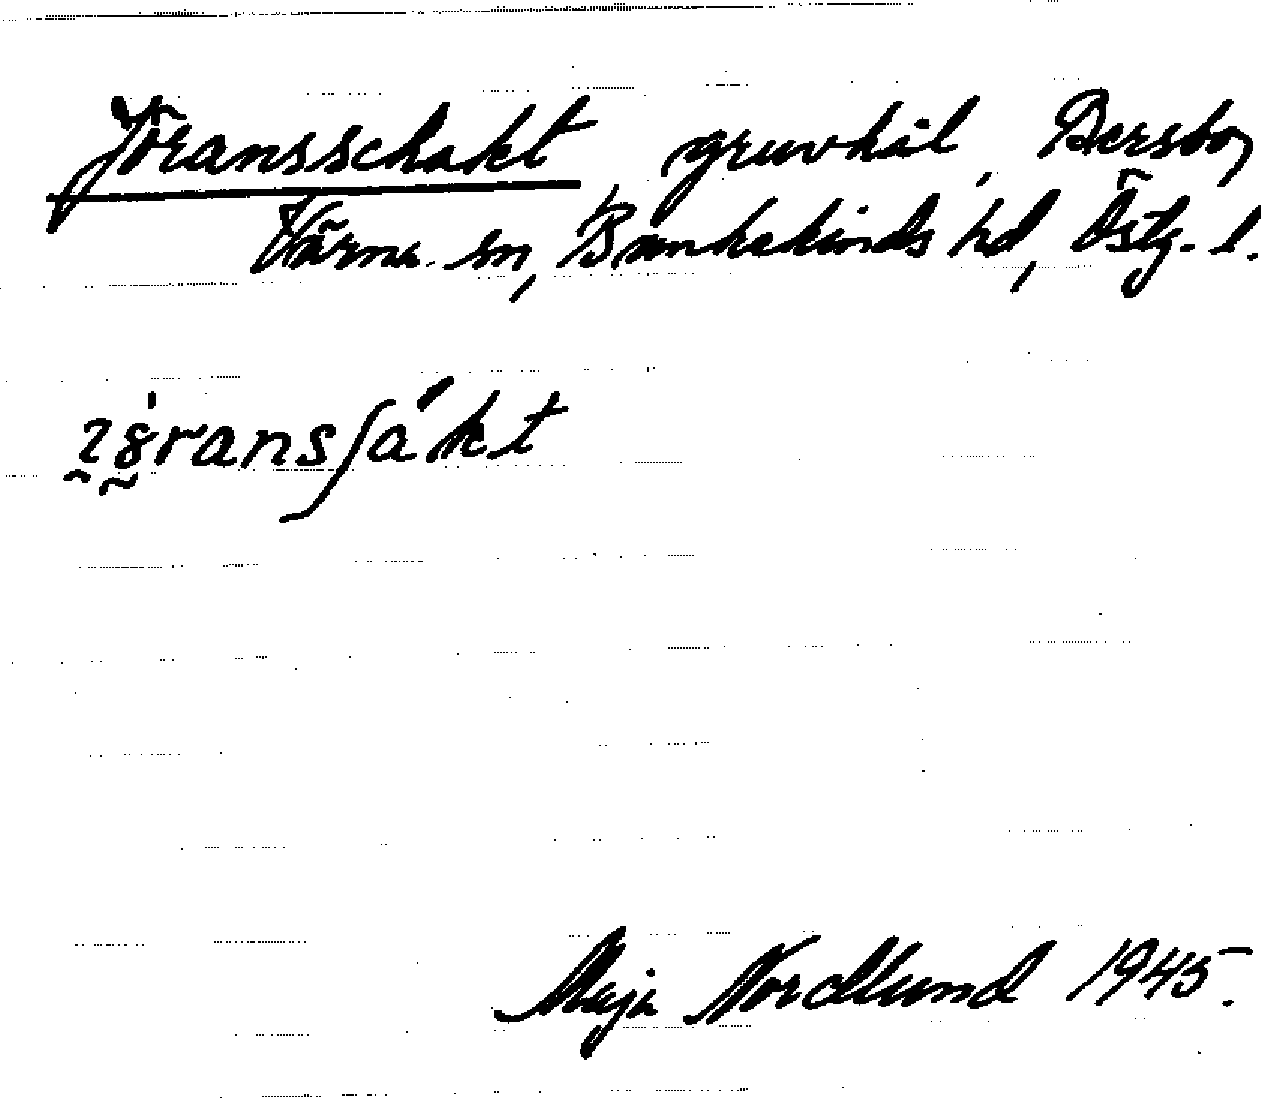 Jöransschakt gruvhål, Bersbo,
Värna sn, Bankekinds hd, Östg. l.
Maja Nordlund 1945.